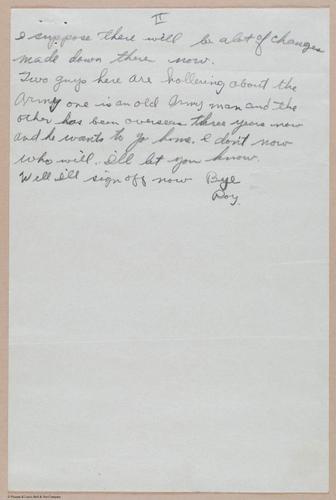 II
I suppose there will be a lot of changes
made down there now.
Two guys here are hollering about the
Army one is an old Army man and the
other has been overseas three years now
and he wants to go home. I don't now
who will. I'll let you know.
Well I'll sign off now Bye
Roy.